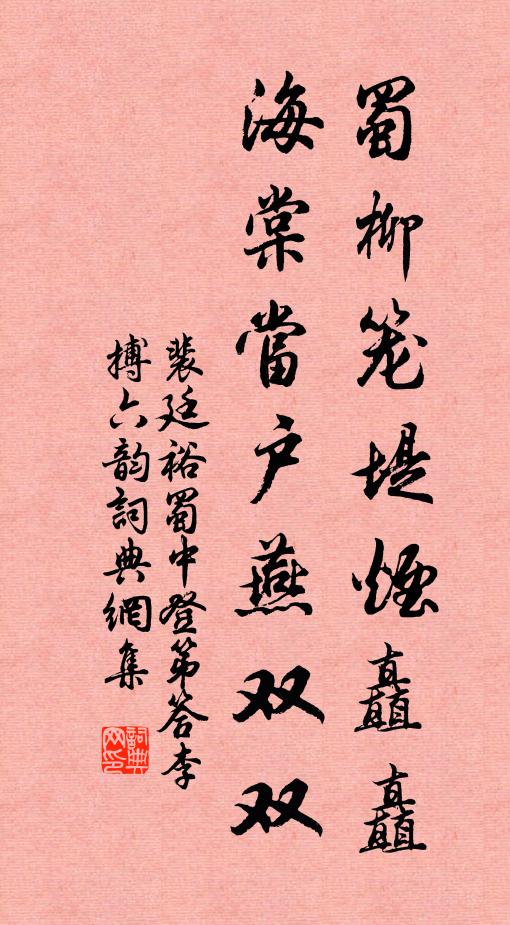 蜀柳笼堤煙矗矗
海棠當户燕双双
裴廷裕蜀中登第答李
搏六韵詞典網集
詞典
网印